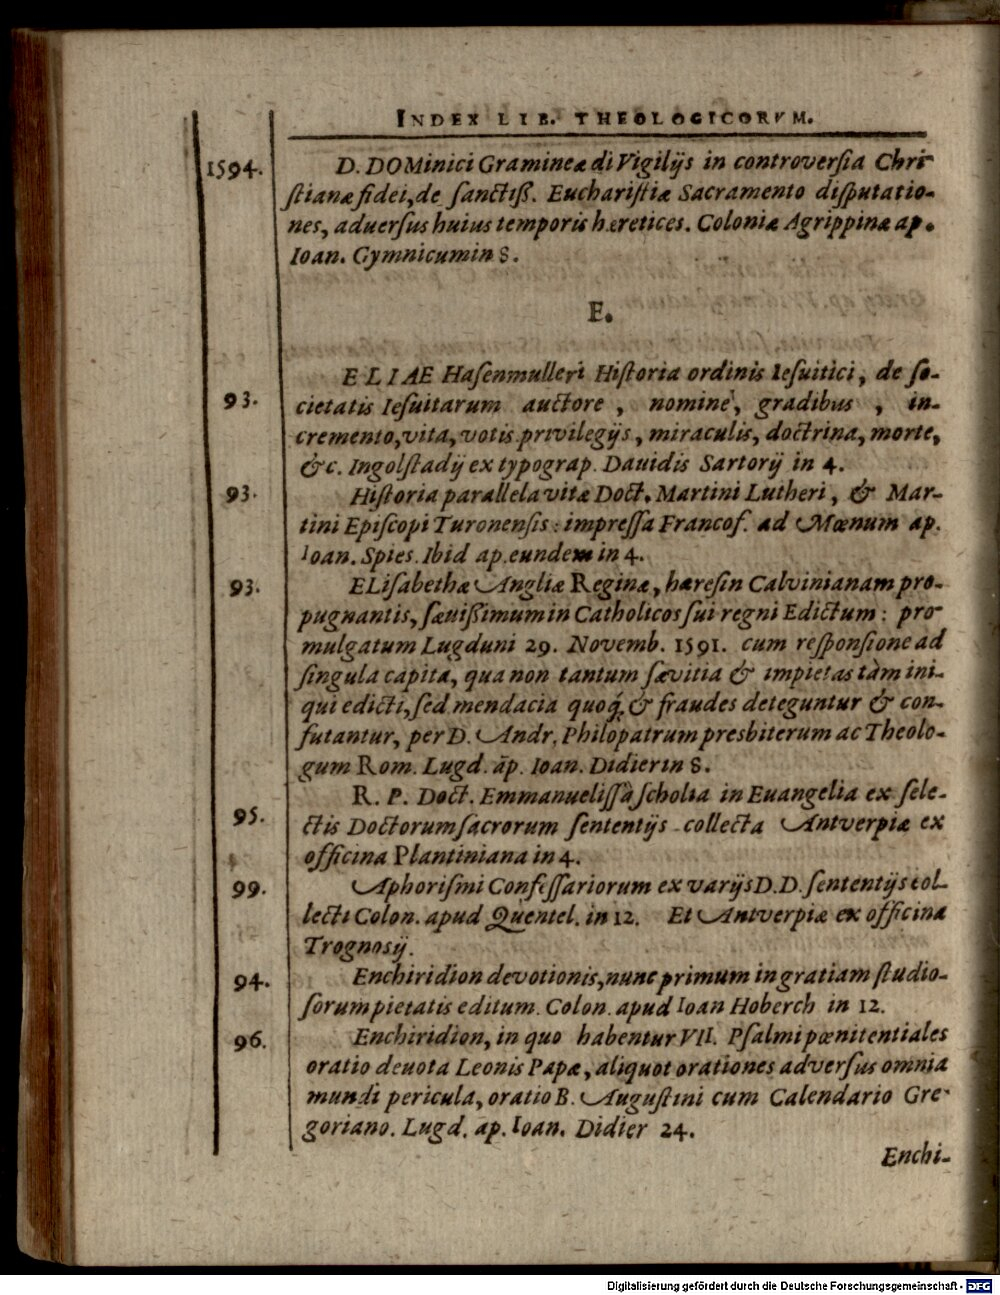 INDEX LIB. THEOLOGICORVM.
1594. D. DOMinici Gramineæ di Vigilijs in controversia Chri-
stianæ fidei, de sanctiß. Eucharistiæ Sacramento disputatio-
nes, aduersus huius temporis hæretices. Coloniæ Agrippinæ ap.
Ioan. Gymnicum in 8.
E.
ELIAE Hasenmulleri Historia ordinis Iesuitici, de so-
93. cietatis Iesuitarum auctore, nomine, gradibus, in-
cremento, vita, votis privilegijs, miraculis, doctrina, morte,
&c. Ingolstadij ex typograp. Dauidis Sartorij in 4.
93. Historia parallela vitæ Doct. Martini Lutheri, & Mar-
tini Episcopi Turonensis: impressa Francof. ad Mœnum ap.
Ioan. Spies. Ibid ap. eundem in 4.
93. ELisabethæ Angliæ Reginæ, hæresin Calvinianam pro-
pugnantis, sæuißimum in Catholicos sui regni Edictum: pro-
mulgatum Lugduni 29. Novemb. 1591. cum responsione ad
singula capita, qua non tantum sævitia & impietas tàm ini-
qui edicti, sed mendacia quoq́; & fraudes deteguntur & con-
futantur, per D. Andr. Philopatrum presbiterum ac Theolo-
gum Rom. Lugd. ap. Ioan. Didier in 8.
R. P. Doct. Emmanuelis Sà scholia in Euangelia ex sele-
95. ctis Doctorum sacrorum sententijs collecta Antverpiæ ex
officina Plantiniana in 4.
99. Aphorismi Confessariorum ex varijs D.D. sententijs col-
lecti Colon. apud Quentel. in 12. Et Antverpiæ ex officina
Trognosij.
94. Enchiridion devotionis, nunc primum in gratiam studio-
sorum pietatis editum. Colon. apud Ioan Hoberch in 12.
96. Enchiridion, in quo habentur VII. Psalmi pœnitentiales
oratio deuota Leonis Papæ, aliquot orationes adversus omnia
mundi pericula, oratio B. Augustini cum Calendario Gre-
goriano. Lugd. ap. Ioan. Didier 24.
Enchi-
Digitalisierung gefördert durch die Deutsche Forschungsgemeinschaft - DFG